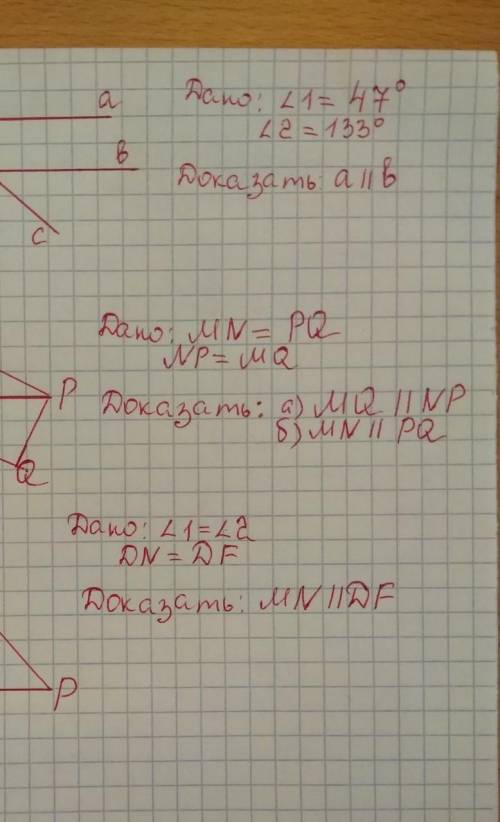 a
Дано: ∠1 = 47°
∠2 = 133°
b
Доказать: a || b
c
Дано: MN = PQ
NP = MQ
P
Доказать: а) MQ || NP
б) MN || PQ
Q
Дано: ∠1 = ∠2
DN = DF
Доказать: MN || DF
P